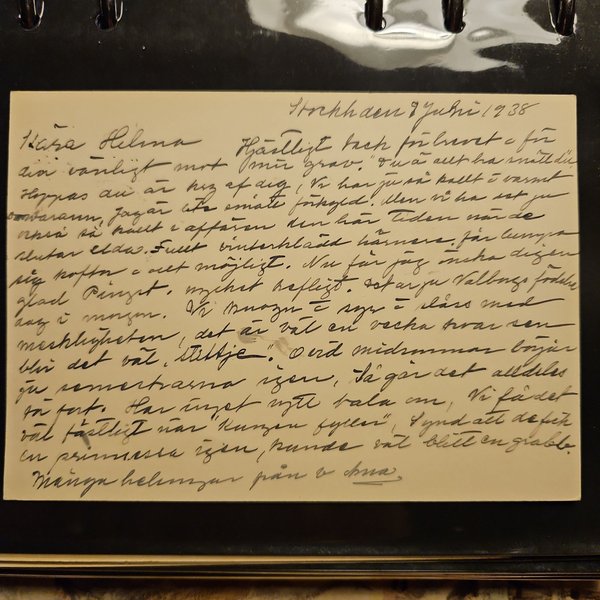 Stockh den 9 Juni 1938
Kära Helma Hjärtligt tack för brevet o för
din vänligt mot min grav. Du är allt bra snäll du
Hoppas du är kry af dig, Vi har ju så kallt o varmt
jag är lite smått förkyld. Men vi ha det ju
också så kallt i affären den här tiden när de
slutar elda. Fullt vinterklädd härnere, får
sig koffta o allt möjligt. Nu får jag önska dig en
glad Pingst, mycket trefligt. Det är ju Valborgs födelse
dag i morgon. Vi o syr o slåss med
det är väl en vecka kvar sen
blir det väl O vid midsommar börjar
ju semestrarna igen, Så går det alldeles
så fort. Har inget nytt tala om, Vi få det
väl fästligt när "Kungen fyller", Synd att de fick
en prinsessa igen, kunde väl blitt en grabb.
Många helsningar från v Ana.